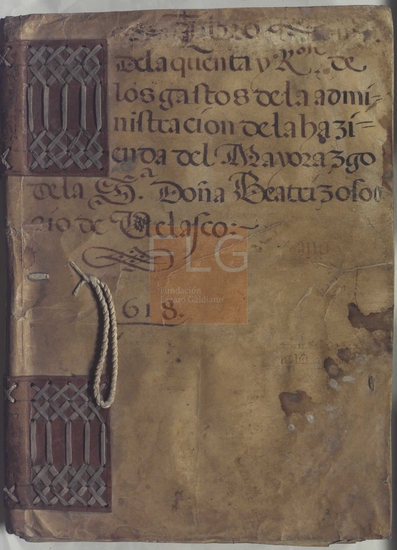 Libro
de la quenta y Rᵒⁿ de
los gastos de la admi=
nistracion de la hazi=
enda del Mayorazgo
de la S.ª Doña Beatriz oso
rio de Velasco:~
FLG
Fundación
Lázaro Galdiano
618.